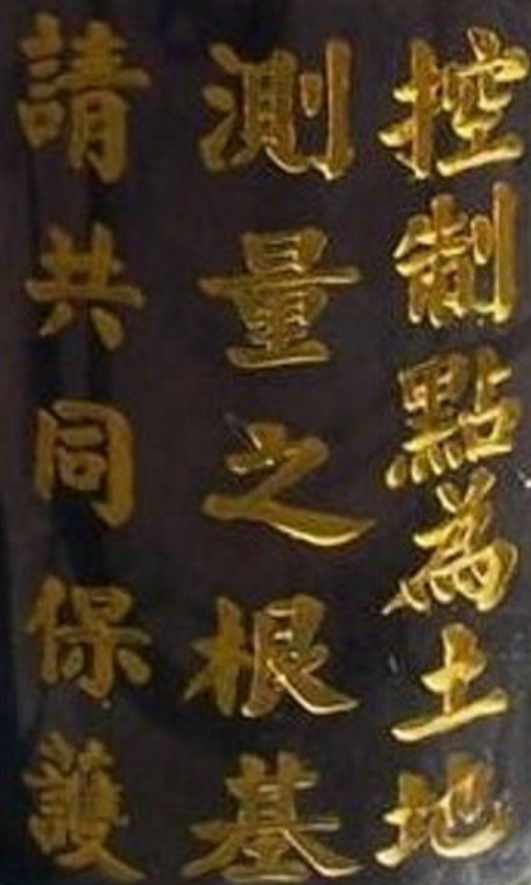 控制點為土地
測量之根基
請共同保護